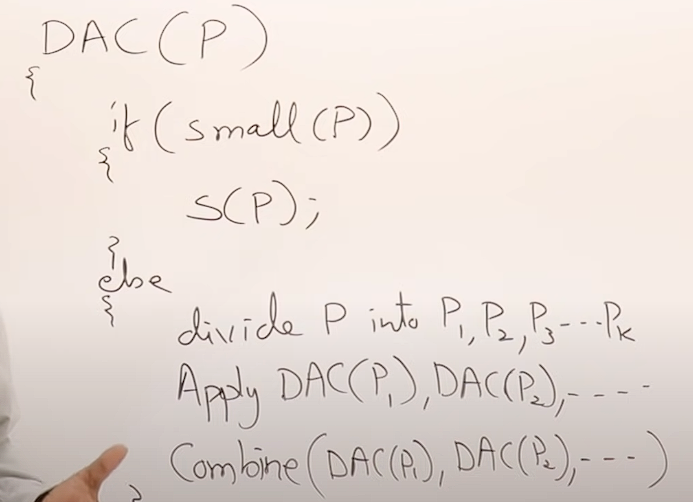 DAC(P)
{
if(small(P))
{
S(P);
}
else
{
divide P into P₁, P₂, P₃---Pₖ
Apply DAC(P₁), DAC(P₂),----
Combine(DAC(P₁), DAC(P₂),---)
}